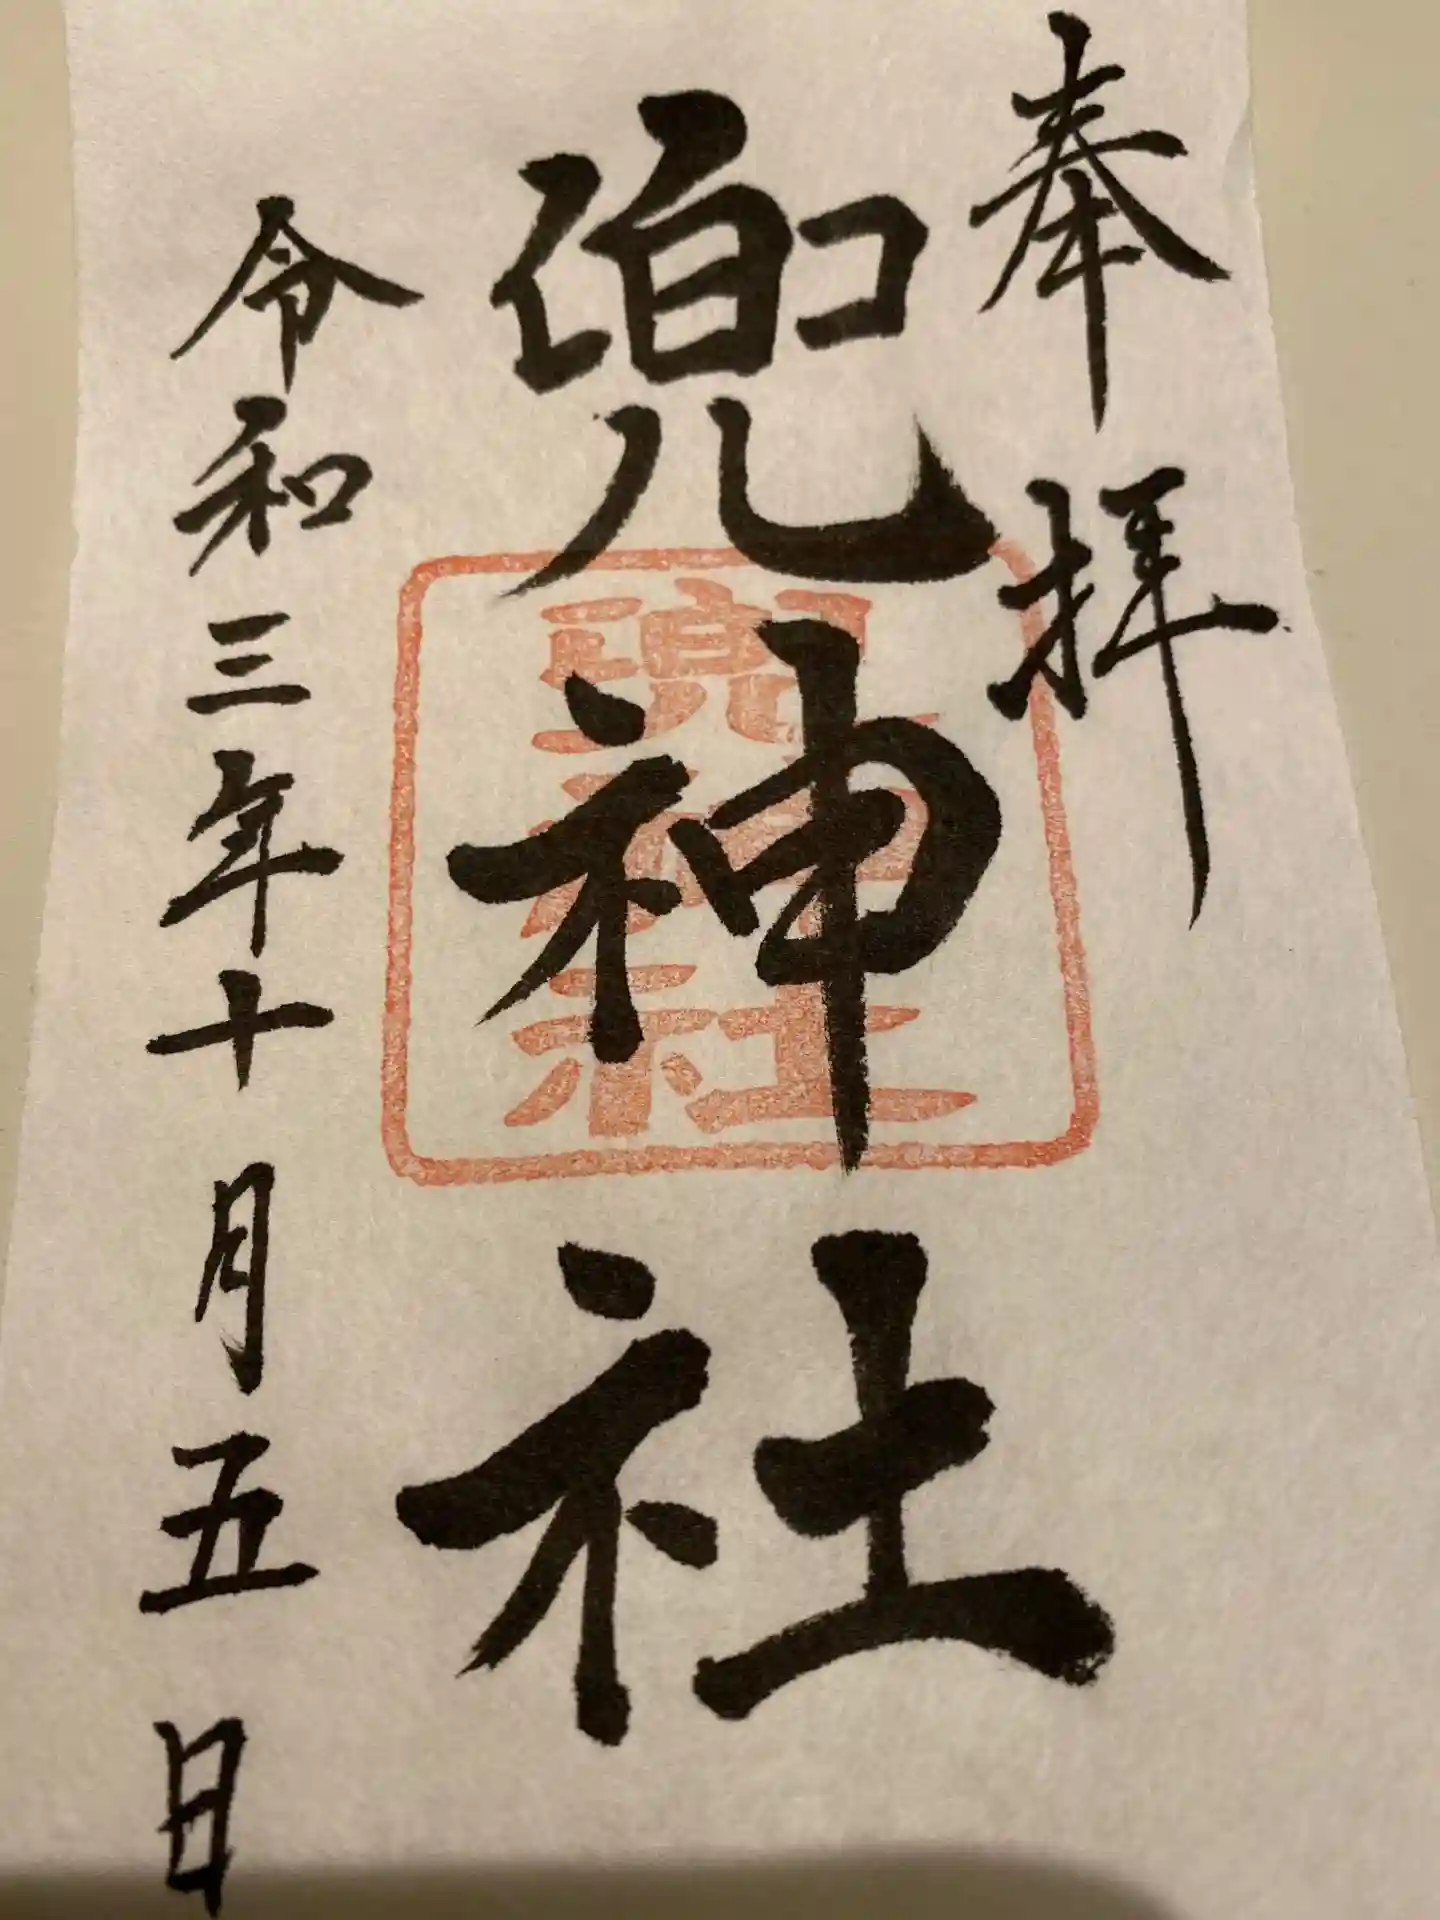 奉拝
兜神社
兜神社
令和三年十月五日